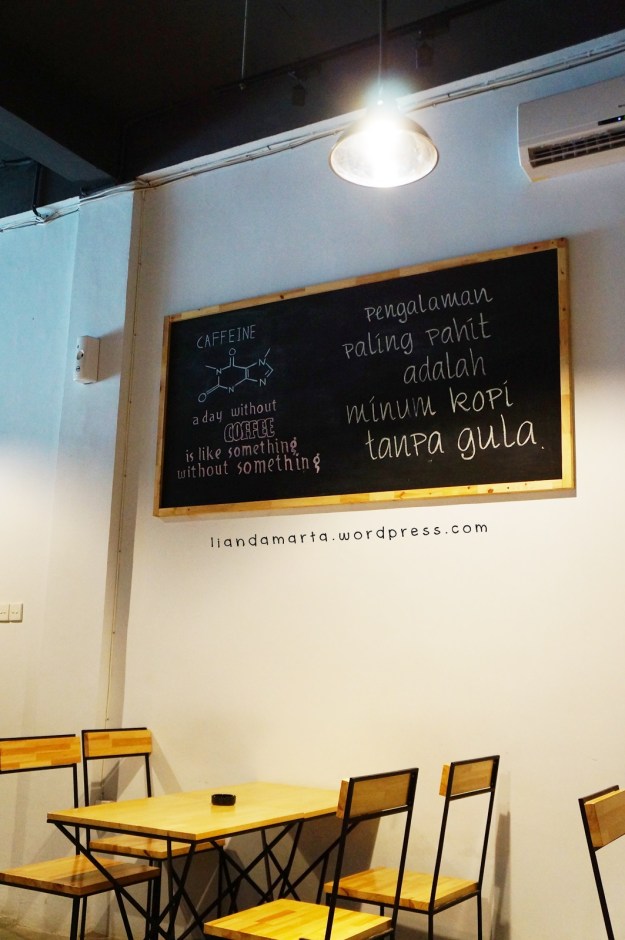 CAFFEINE
O
N
N
O
N
N
a day without
COFFEE
is like something
without something
pengalaman
paling pahit
adalah
minum kopi
tanpa gula.
liandamarta.wordpress.com